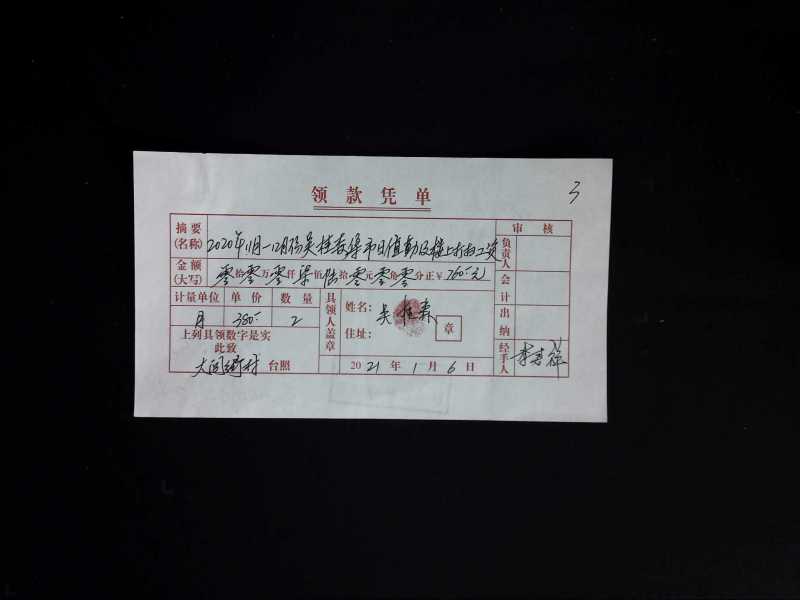 领款凭单
3
摘要(名称) 2020年11月-12月份吴桂森集市日值勤及楼上打扫工资
审核
金额(大写) 零拾零万零仟柒佰陆拾零元零角零分正¥760元
负责人
计量单位 单价 数量
会计
月 380- 2
具领人盖章
姓名: 吴桂森
住址:
章
出纳
上列具领数字是实
此致
台照
2021年1月6日
经手人